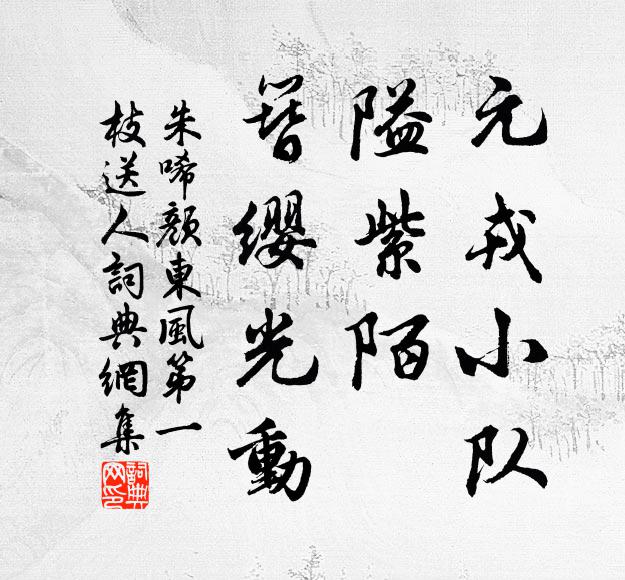 元戎小队
隘紫陌
簪缨光動
朱唏顏東風第一
枝送人詞典網集
詞典网印